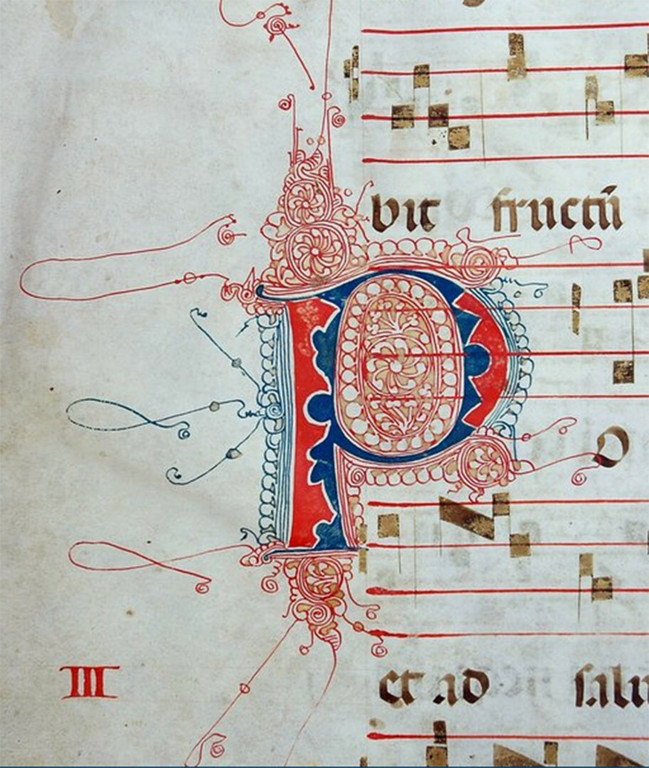 vit fructū
P o
III et ad salu